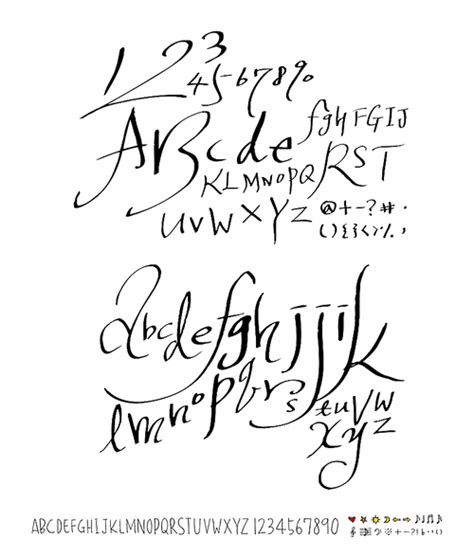 123
4567890
ABcde
fgh FGIJ
KLMNOPQ RST
UVWXYZ @+-?#.
abcdefghijjk
lmnopqrs
tuvw
xyz
ABCDEFGHIJKLMNOPQRSTUVWXYZ 1234567890